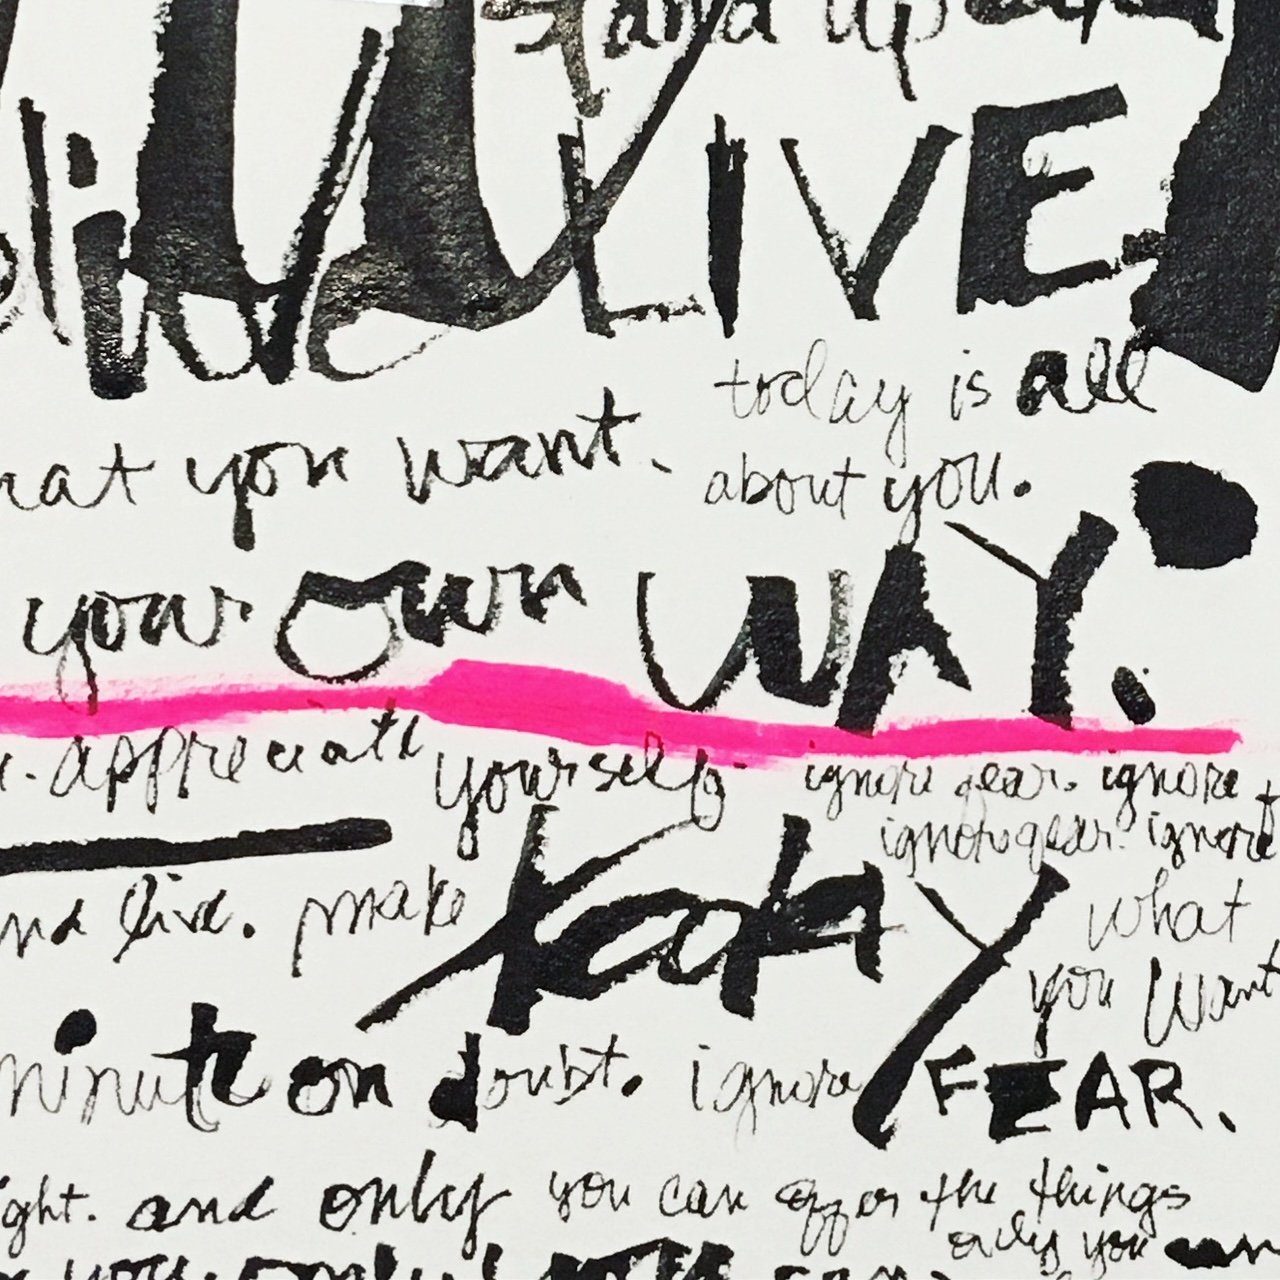 stand up
live LIVE
today is all
you want. about you.
your own WAY.
appreciate yourself. ignore fear. ignore
ignore fear. ignore
live. make today what
you want
minute on doubt. ignore FEAR.
and only you can offer the things
only you can
you. only